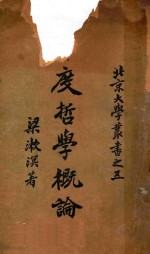 北京大學叢書之三
度哲學概論
梁漱溟著